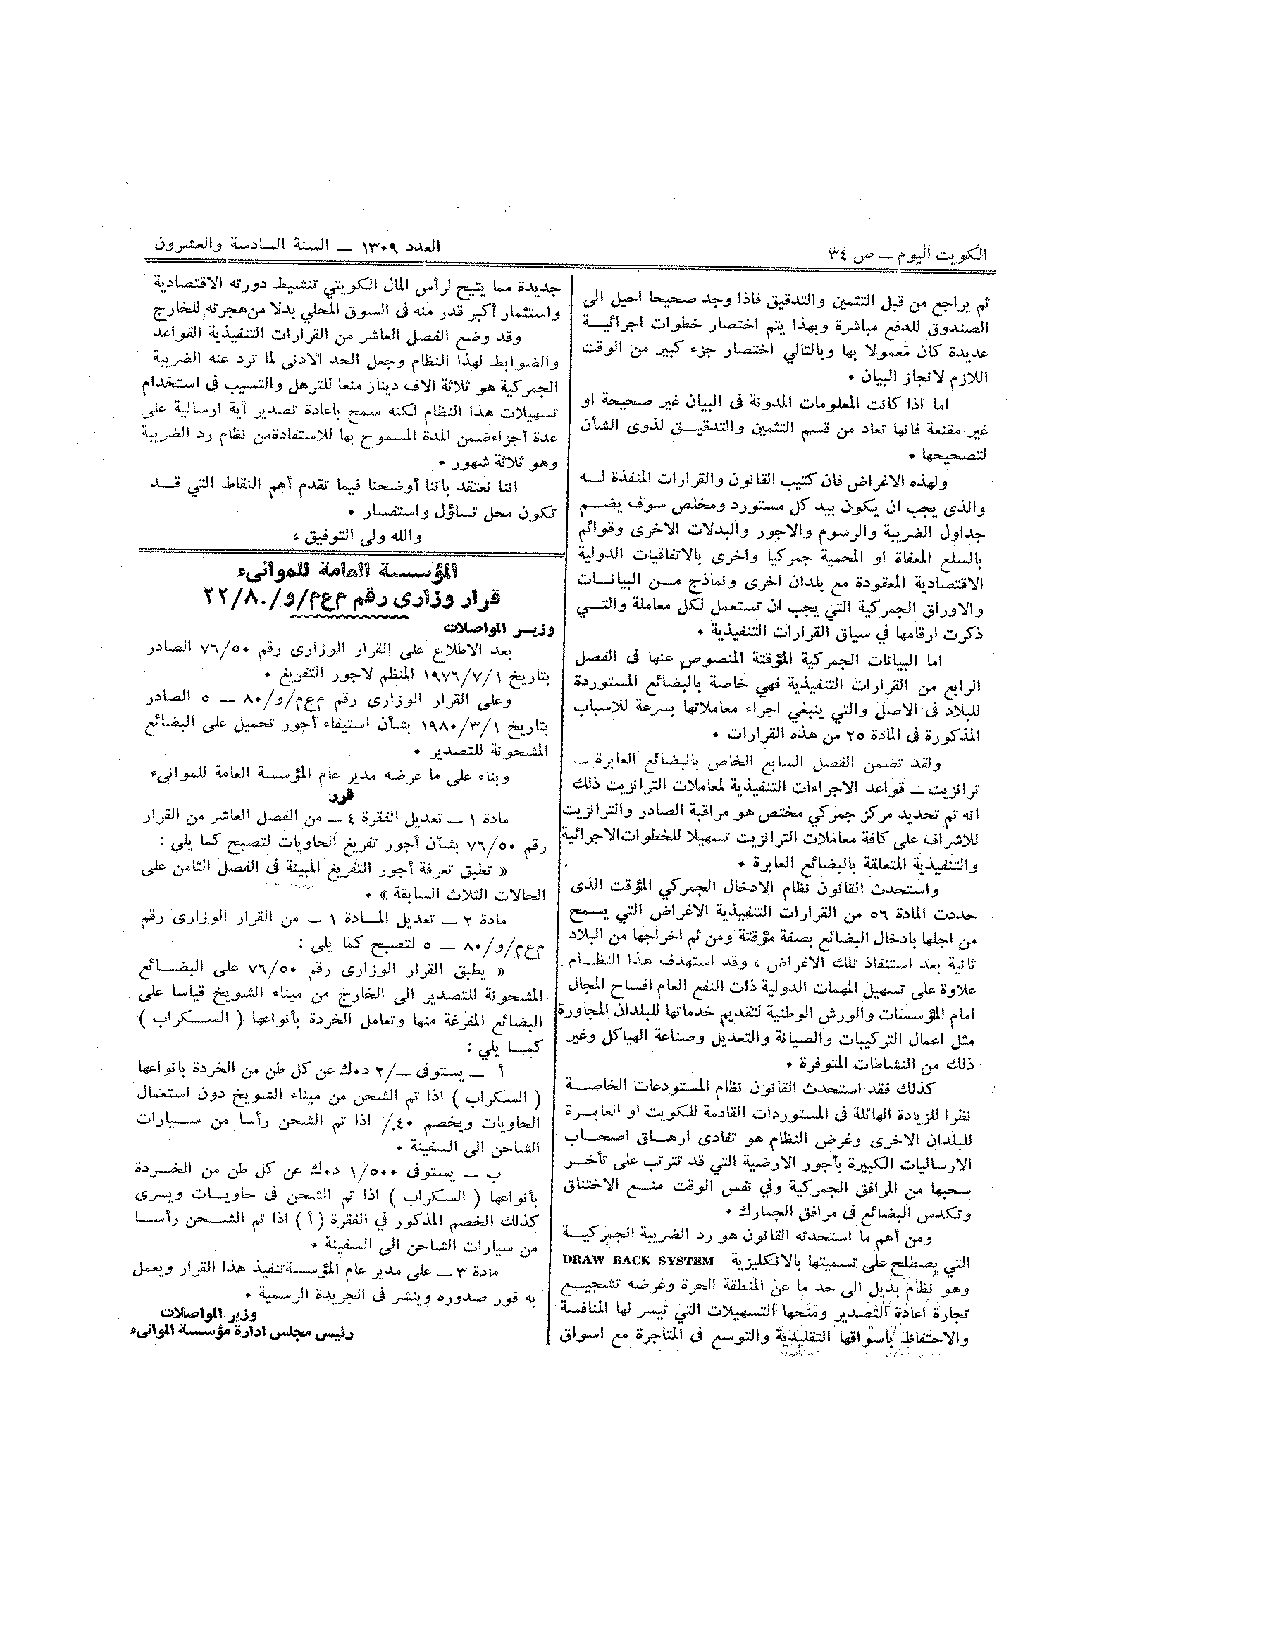 الكويت اليوم — ص ٣٤
العدد ١٣٠٩ — السنة السادسة والعشرون
ثم يراجع من قبل التثمين والتدقيق فاذا وجد صحيحا احيل الى
الصندوق للدفع مباشرة وبهذا يتم اختصار خطوات اجرائيـــة
عديدة كان معمولا بها وبالتالي اختصار جزء كبير من الوقت
اللازم لانجاز البيان •
اما اذا كانت المعلومات المدونة فى البيان غير صحيحة او
غير مقنعة فانها تعاد من قسم التثمين والتدقيـــق لذوى الشأن
لتصحيحها •
ولهذه الاغراض فان كتيب القانون والقرارات المنفذة لـــه
والذى يجب ان يكون بيد كل مستورد ومخلص سوف يضـــم
جداول الضريبة والرسوم والاجور والبدلات الاخرى وقوائم
بالسلع المعفاة او المحمية جمركيا واخرى بالاتفاقيات الدولية
الاقتصادية المعقودة مع بلدان اخرى ونماذج مـــن البيانـــات
والاوراق الجمركية التي يجب ان تستعمل لكل معاملة والتـــي
ذكرت ارقامها في سياق القرارات التنفيذية •
اما البيانات الجمركية المؤقتة المنصوص عنها فى الفصل
الرابع من القرارات التنفيذية فهي خاصة بالبضائع المستوردة
للبلاد فى الاصل والتي ينبغي اجراء معاملاتها بسرعة للاسباب
المذكورة فى المادة ٢٥ من هذه القرارات •
ولقد تضمن الفصل السابع الخاص بالبضائع العابرة —
ترانزيت — قواعد الاجراءات التنفيذية لمعاملات الترانزيت ذلك
انه تم تحديد مركز جمركي مختص هو مراقبة الصادر والترانزيت
للاشراف على كافة معاملات الترانزيت تسهيلا للخطوات الاجرائية
والتنفيذية المتعلقة بالبضائع العابرة •
واستحدث القانون نظام الادخال الجمركي المؤقت الذى
حددت المادة ٥٦ من القرارات التنفيذية الاغراض التي يسمح
من اجلها بادخال البضائع بصفة مؤقتة ومن ثم اخراجها من البلاد
ثانية بعد استنفاذ تلك الاغراض ، وقد استهدف هذا النظـــام
علاوة على تسهيل المهمات الدولية ذات النفع العام افساح المجال
امام المؤسسات والورش الوطنية لتقديم خدماتها للبلدان المجاورة
مثل اعمال التركيبات والصيانة والتعديل وصناعة الهياكل وغير
ذلك من النشاطات المتوفرة •
كذلك فقد استحدث القانون نظام المستودعات الخاصـــة
نظرا للزيادة الهائلة فى المستوردات القادمة للكويت او العابـــرة
للبلدان الاخرى وغرض النظام هو تفادى ارهـــاق اصحـــاب
الارساليات الكبيرة بأجور الارضية التي قد تترتب على تأخـــر
سحبها من المرافق الجمركية وفي نفس الوقت منـــع الاختناق
وتكدس البضائع فى مرافق الجمارك •
ومن أهم ما استحدثه القانون هو رد الضريبة الجمركيـــة
التي يصطلح على تسميتها بالانكليزية DRAW BACK SYSTEM
وهو نظام بديل الى حد ما عن المنطقة الحرة وغرضه تشجيـــع
تجارة اعادة التصدير ومنحها التسهيلات التي تيسر لها المنافسة
والاحتفاظ بأسواقها التقليدية والتوسع فى المتاجرة مع اسواق
جديدة مما يتيح لرأس المال الكويتي تنشيط دورته الاقتصادية
واستثمار أكبر قدر منه فى السوق المحلي بدلا من هجرته للخارج
وقد وضع الفصل العاشر من القرارات التنفيذية القواعد
والضوابط لهذا النظام وجعل الحد الادنى لما ترد عنه الضريبة
الجمركية هو ثلاثة الاف دينار منعا للترهل والتسيب فى استخدام
تسهيلات هذا النظام لكنه سمح باعادة تصدير أية ارسالية على
عدة أجزاء ضمن المدة المسموح بها للاستفادة من نظام رد الضريبة
وهو ثلاثة شهور •
اننا نعتقد باننا أوضحنا فيما تقدم أهم النقاط التي قـــد
تكون محل تساؤل واستفسار •
والله ولى التوفيق ،
المؤسسة العامة للموانىء
قرار وزارى رقم م ع م/و/٢٢/٨٠
وزيــر المواصلات
بعد الاطلاع على القرار الوزارى رقم ٧٦/٥٠ الصادر
بتاريخ ١٩٧٦/٧/١ المنظم لاجور التفريغ •
وعلى القرار الوزارى رقم م ع م/و/٨٠ — ٥ الصادر
بتاريخ ١٩٨٠/٣/١ بشأن استيفاء أجور تحميل على البضائع
المشحونة للتصدير •
وبناء على ما عرضه مدير عام المؤسسة العامة للموانىء
قرر
مادة ١ — تعديل الفقرة ٤ — من الفصل العاشر من القرار
رقم ٧٦/٥٠ بشأن أجور تفريغ الحاويات لتصبح كما يلى :
« تطبق تعرفة أجور التفريغ المبينة فى الفصل الثامن على
الحالات الثلاث السابقة » •
مادة ٢ — تعديل المـــادة ١ — من القرار الوزارى رقم
م ع م/و/٨٠ — ٥ لتصبح كما يلى :
« يطبق القرار الوزارى رقم ٧٦/٥٠ على البضـــائع
المشحونة للتصدير الى الخارج من ميناء الشويخ قياسا على
البضائع المفرغة منها وتعامل الخردة بأنواعها ( السـكراب )
كمـــا يلي :
أ — يستوفى —/٢ د٠ك عن كل طن من الخردة بانواعها
( السكراب ) اذا تم الشحن من ميناء الشويخ دون استعمال
الحاويات ويخصم ٤٠٪ اذا تم الشحن رأسا من ســـيارات
الشاحن الى السفينة •
ب — يستوفى ١/٥٠٠ د٠ك عن كل طن من الخـــردة
بأنواعها ( السكراب ) اذا تم الشحن فى حاويـــات ويسرى
كذلك الخصم المذكور في الفقرة ( أ ) اذا تم الشـــحن رأســـا
من سيارات الشاحن الى السفينة •
مادة ٣ — على مدير عام المؤسسة تنفيذ هذا القرار ويعمل
به فور صدوره وينشر فى الجريدة الرسمية •
وزير المواصلات
رئيس مجلس ادارة مؤسسة الموانىء